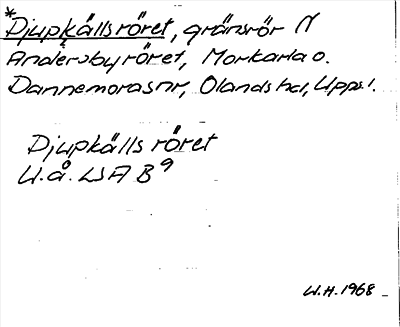 *Djupkällsröret, gränsrör N
Andersbyröret, Morkarla o.
Dannemora snr, Olands hd, Uppl.
Djupkällsröret
U.å. LSA B9
W.H. 1968